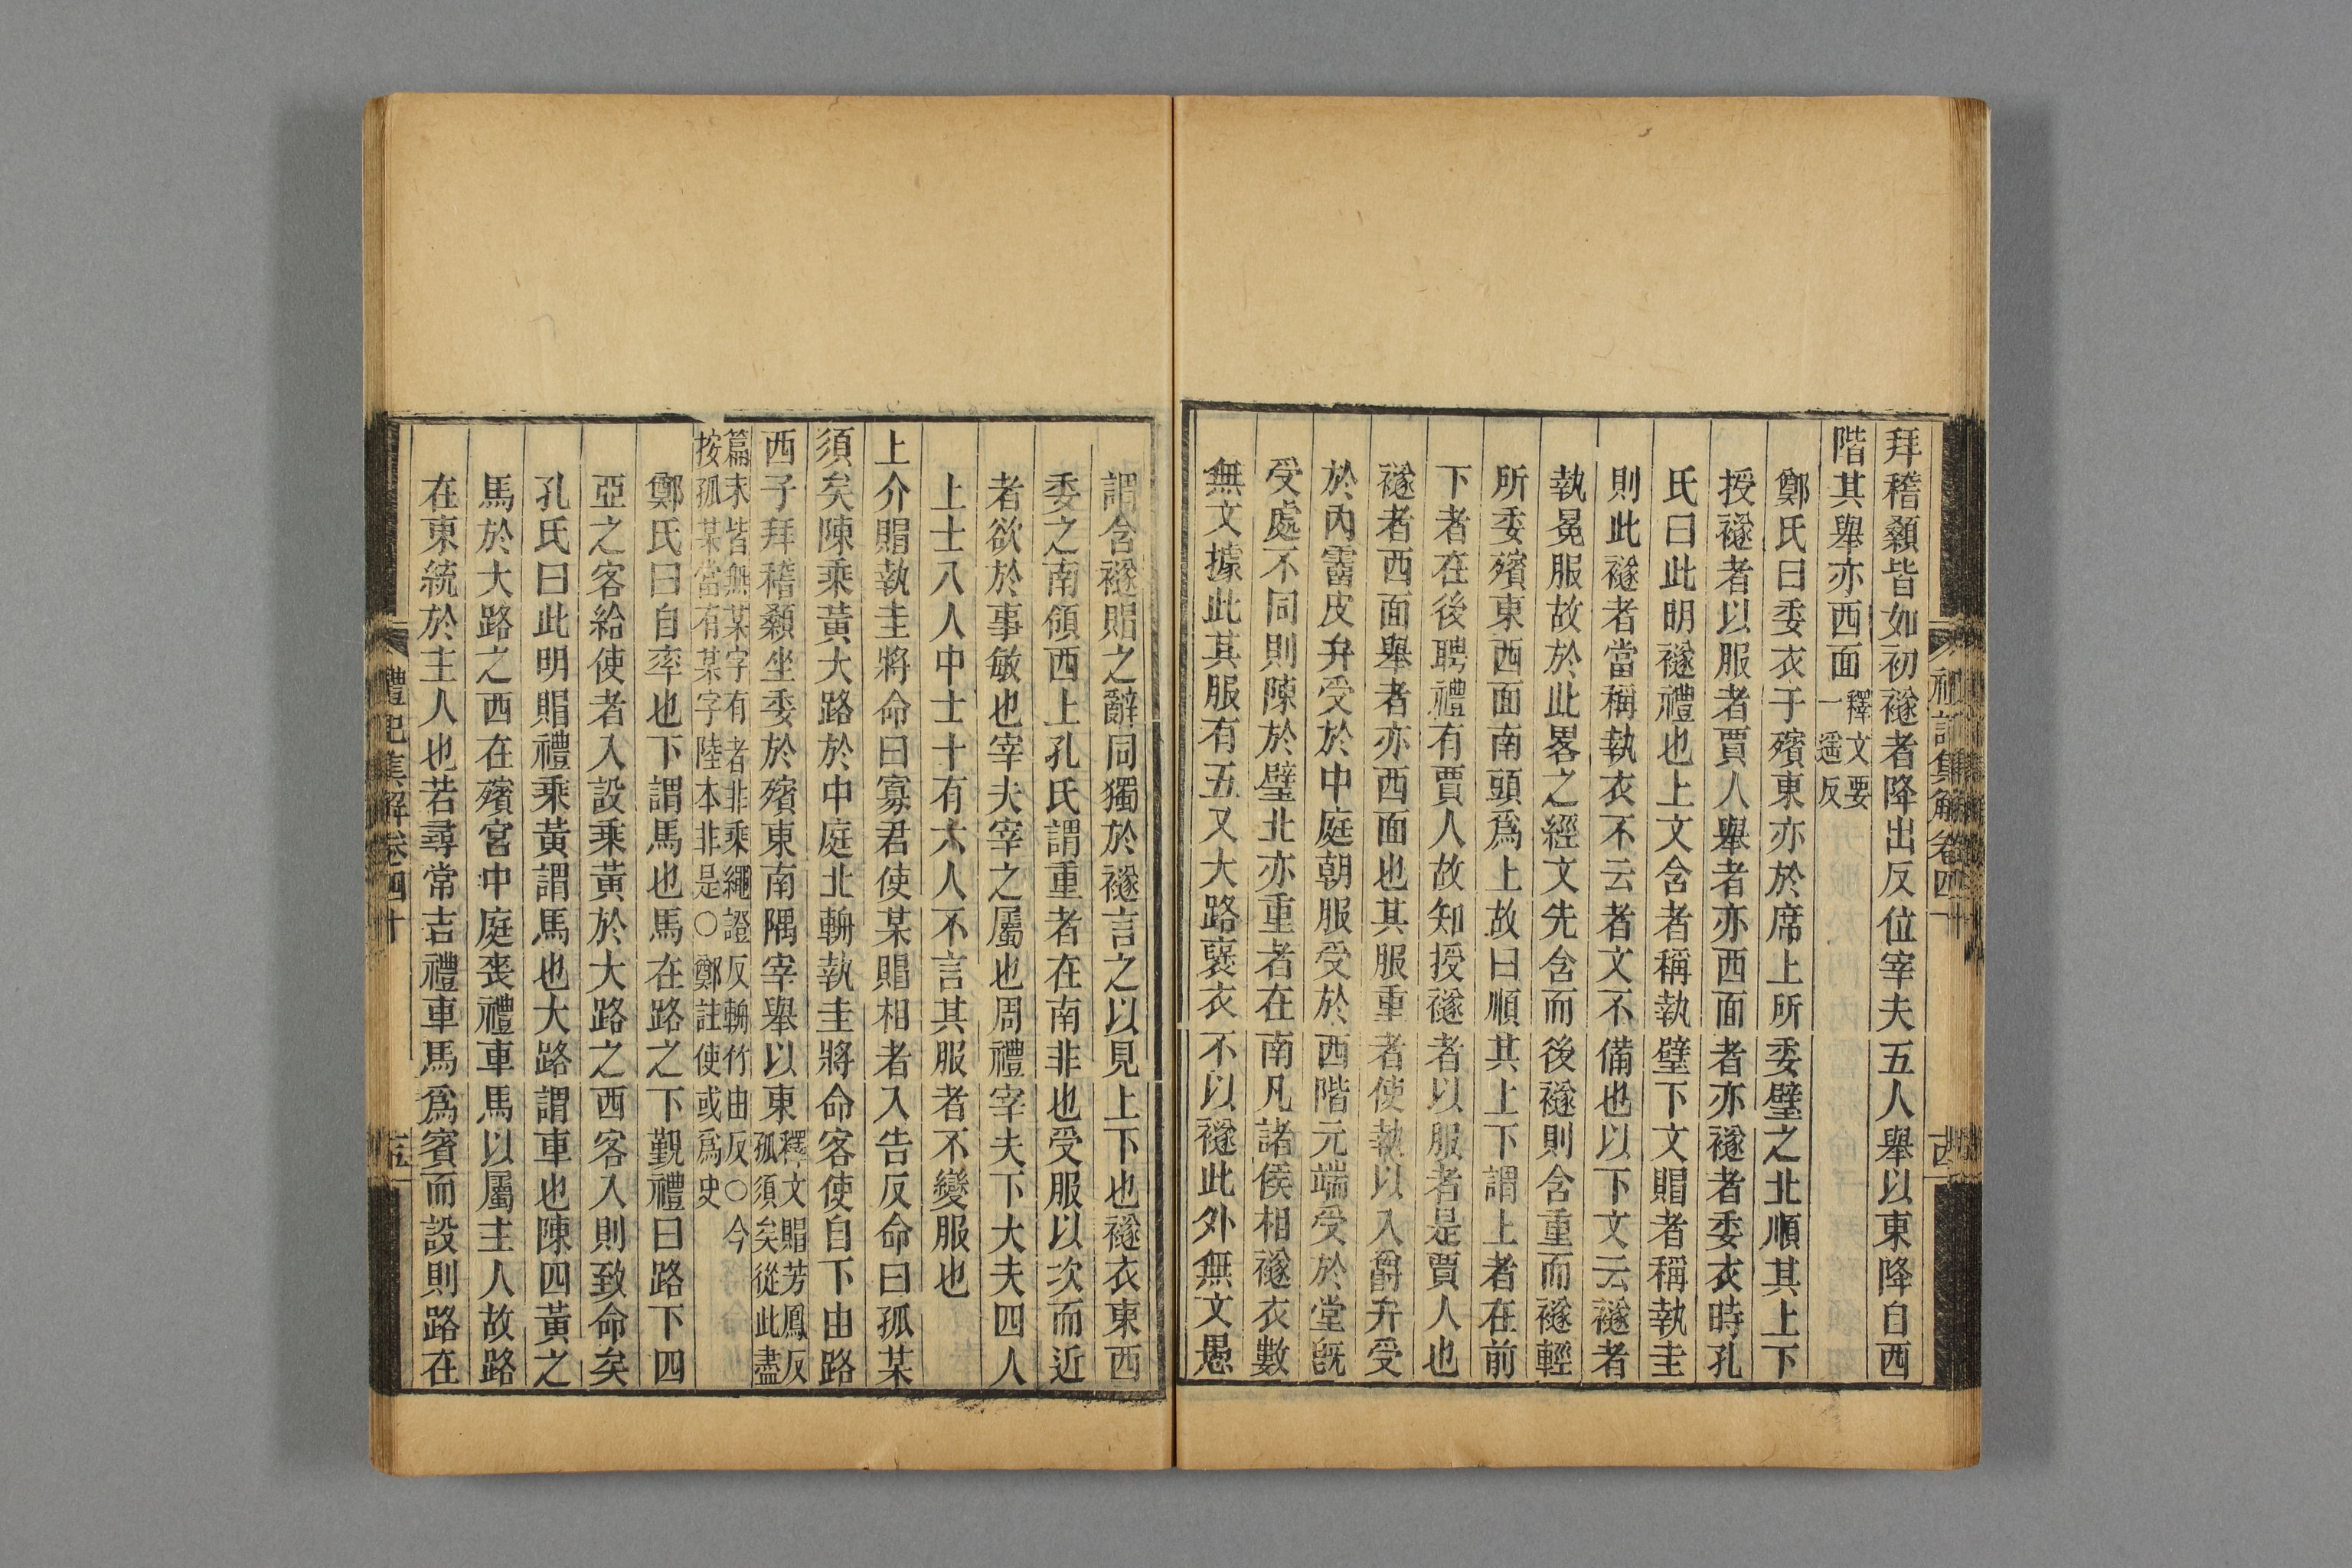 禮記集解卷四十
拜稽顙皆如初襚者降出反位宰夫五人舉以東降自西
階其舉亦西面釋文要
一遥反
鄭氏曰委衣于殯東亦於席上所委璧之北順其上下
授襚者以服者賈人舉者亦西面者亦襚者委衣時孔
氏曰此明襚禮也上文含者稱執璧下文賵者稱執圭
則此襚者當稱執衣不云者文不備也以下文云襚者
執冕服故於此畧之經文先含而後襚則含重而襚輕
所委殯東西面南頭爲上故曰順其上下謂上者在前
下者在後聘禮有賈人故知授襚者以服者是賈人也
襚者西面舉者亦西面也其服重者使執以入爵弁受
於內霤皮弁受於中庭朝服受於西階元端受於堂旣
受處不同則陳於璧北亦重者在南凡諸侯相襚衣數
無文據此其服有五又大路襃衣不以襚此外無文愚
謂含襚賵之辭同獨於襚言之以見上下也襚衣東西
委之南領西上孔氏謂重者在南非也受服以次而近
者欲於事敏也宰夫宰之屬也周禮宰夫下大夫四人
上士八人中士十有六人不言其服者不變服也
上介賵執圭將命曰寡君使某賵相者入告反命曰孤某
須矣陳乘黃大路於中庭北輈執圭將命客使自下由路
西子拜稽顙坐委於殯東南隅宰舉以東釋文賵芳鳳反
孤須矣從此盡
篇末皆無某字有者非乘繩證反輈竹由反○今
按孤某當有某字陸本非是○鄭註使或爲史
鄭氏曰自率也下謂馬也馬在路之下覲禮曰路下四
亞之客給使者入設乘黃於大路之西客入則致命矣
孔氏曰此明賵禮乘黃謂馬也大路謂車也陳四黃之
馬於大路之西在殯宮中庭喪禮車馬以屬主人故路
在東統於主人也若尋常吉禮車馬爲賓而設則路在
禮記集解卷四十